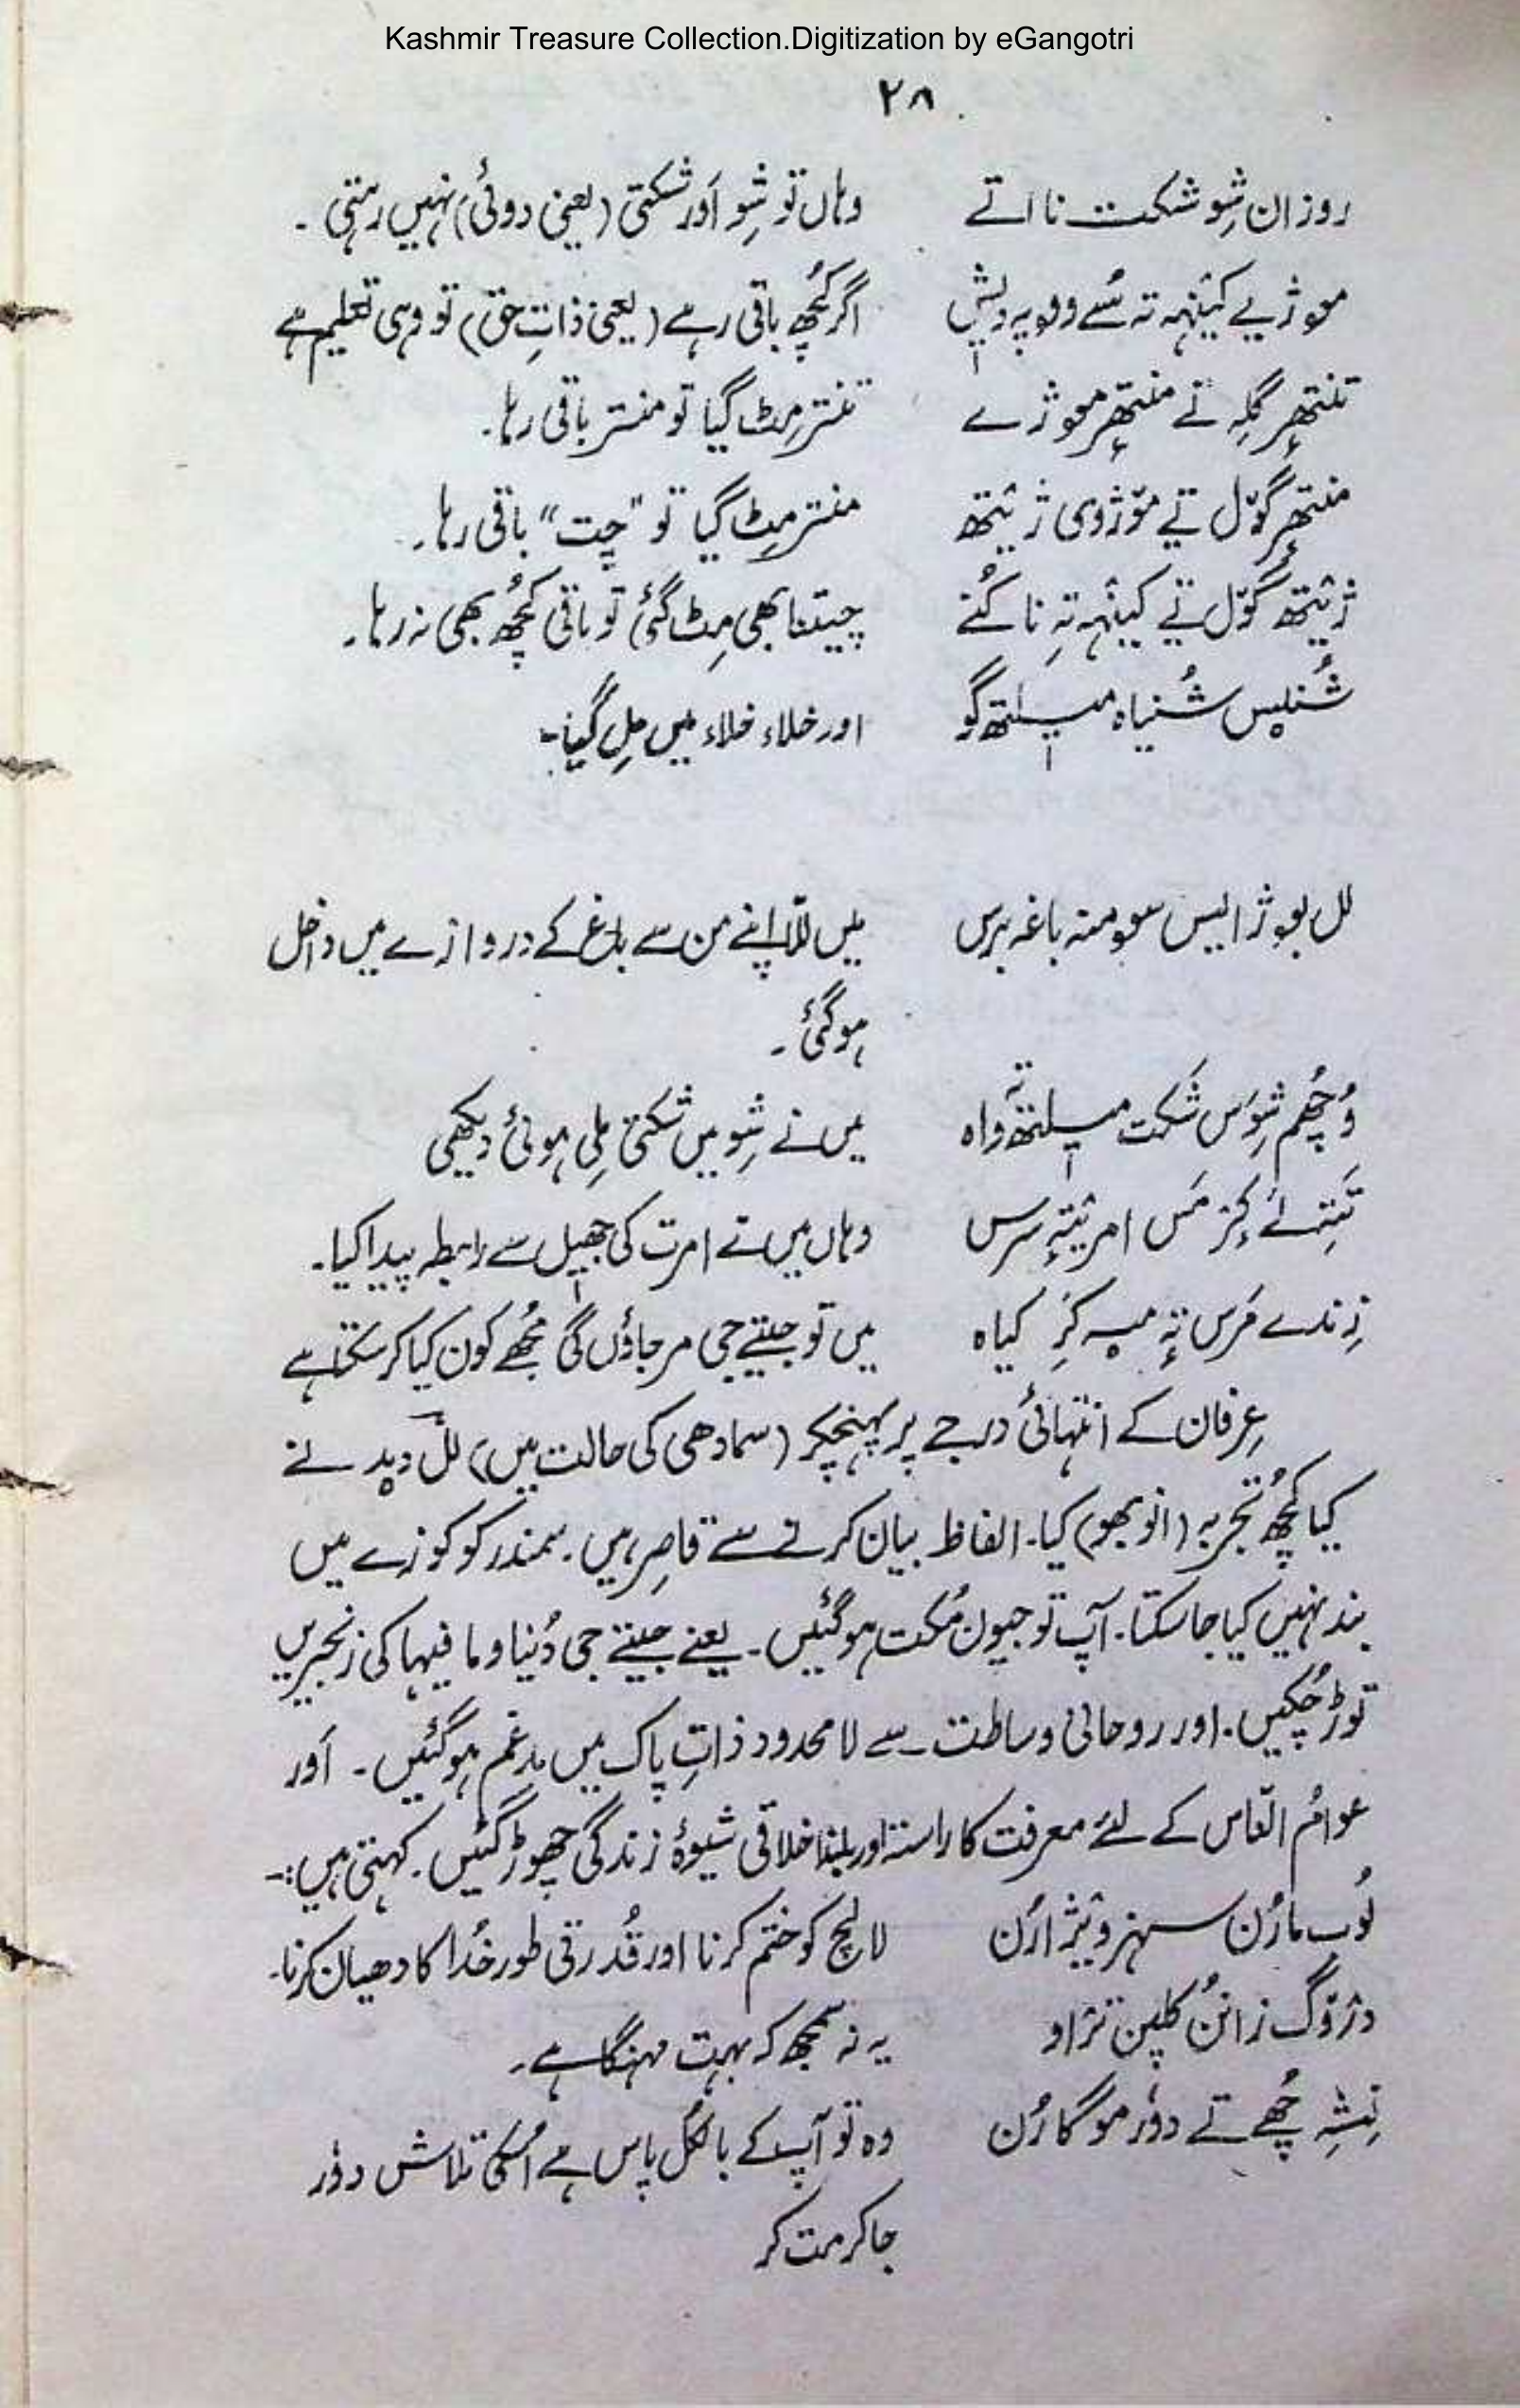 Kashmir Treasure Collection.Digitization by eGangotri
۲۸
روزان شِو شکت نا اتے وہاں تو شِو اَور شکتی (یعنی دوئی) نہیں رہتی ۔
موژیے کینہہ تہ سُے ووپہ دیش اگر کُچھ باقی رہے (یعنی ذاتِ حق) تو وہی تعلیم ہے
تنتھرٕ گلِہ تے منتھرٕ موژے تنتر مِٹ گیا تو منتر باقی رہا۔
منتھرٕ گوٚل تے موٚژوی ژیتھ منتر مِٹ گیا تو "چِت" باقی رہا۔
ژیتھ گوٚل تے کینہہ تہِ نا کُنے چیتنا بھی مِٹ گئی تو باقی کُچھ بھی نہ رہا۔
شُنیس شُنیاہ میلتھ گو اور خلاء خلاء میں مِل گیا۔
لل بوژایس سومنہ باغہ برس میں للّا اپنے من سے باغ کے دروازے میں داخل
ہوگئی ۔
وُچھُم شِوَس شکت میلتھ تہٕ واہ میں نے شِو میں شکتی مِلی ہوئی دیکھی
تَتِہے کٔرٕ مَس امریتہٕ سرس وہاں میں نے امرت کی جھیل سے رابطہ پیدا کیا۔
زِندے مَرس تہٕ میہ کَرِ کیاہ میں تو جیتے جی مر جاؤں گی مُجھے کون کیا کر سکتا ہے
عِرفان کے انتہائی درجے پر پہنچکر (سمادھی کی حالت میں) للؔ دید نے
کیا کُچھ تجربہ (انوبھو) کیا۔ الفاظ بیان کرنے سے قاصِر ہیں۔ سمندر کو کوزے میں
بند نہیں کیا جاسکتا۔ آپ تو جیون مُکت ہوگئیں ۔ یعنے جیتے جی دُنیا و ما فیہا کی زنجیریں
توڑ چُکیں۔ اور روحانی وساطت سے لا محدود ذاتِ پاک میں مدغم ہوگئیں ۔ اَور
عوامُ النّاس کے لئے معرفت کا راستہ اور بلند اخلاقی شیوۂ زندگی چھوڑ گئیں۔ کہتی ہیں :-
لُوب مارُن سہز ویژارُن لالچ کو ختم کرنا اور قُدرتی طور خُدا کا دھیان کرنا۔
دژوٚگ زانُن کلپن تراو یہ نہ سمجھ کہ بہت مہنگا ہے ۔
نِشِہ چُھے تے دوٗر مو گارُن وہ تو آپ کے بالکُل پاس ہے اُسکی تلاش دوٗر
جاکر مت کر